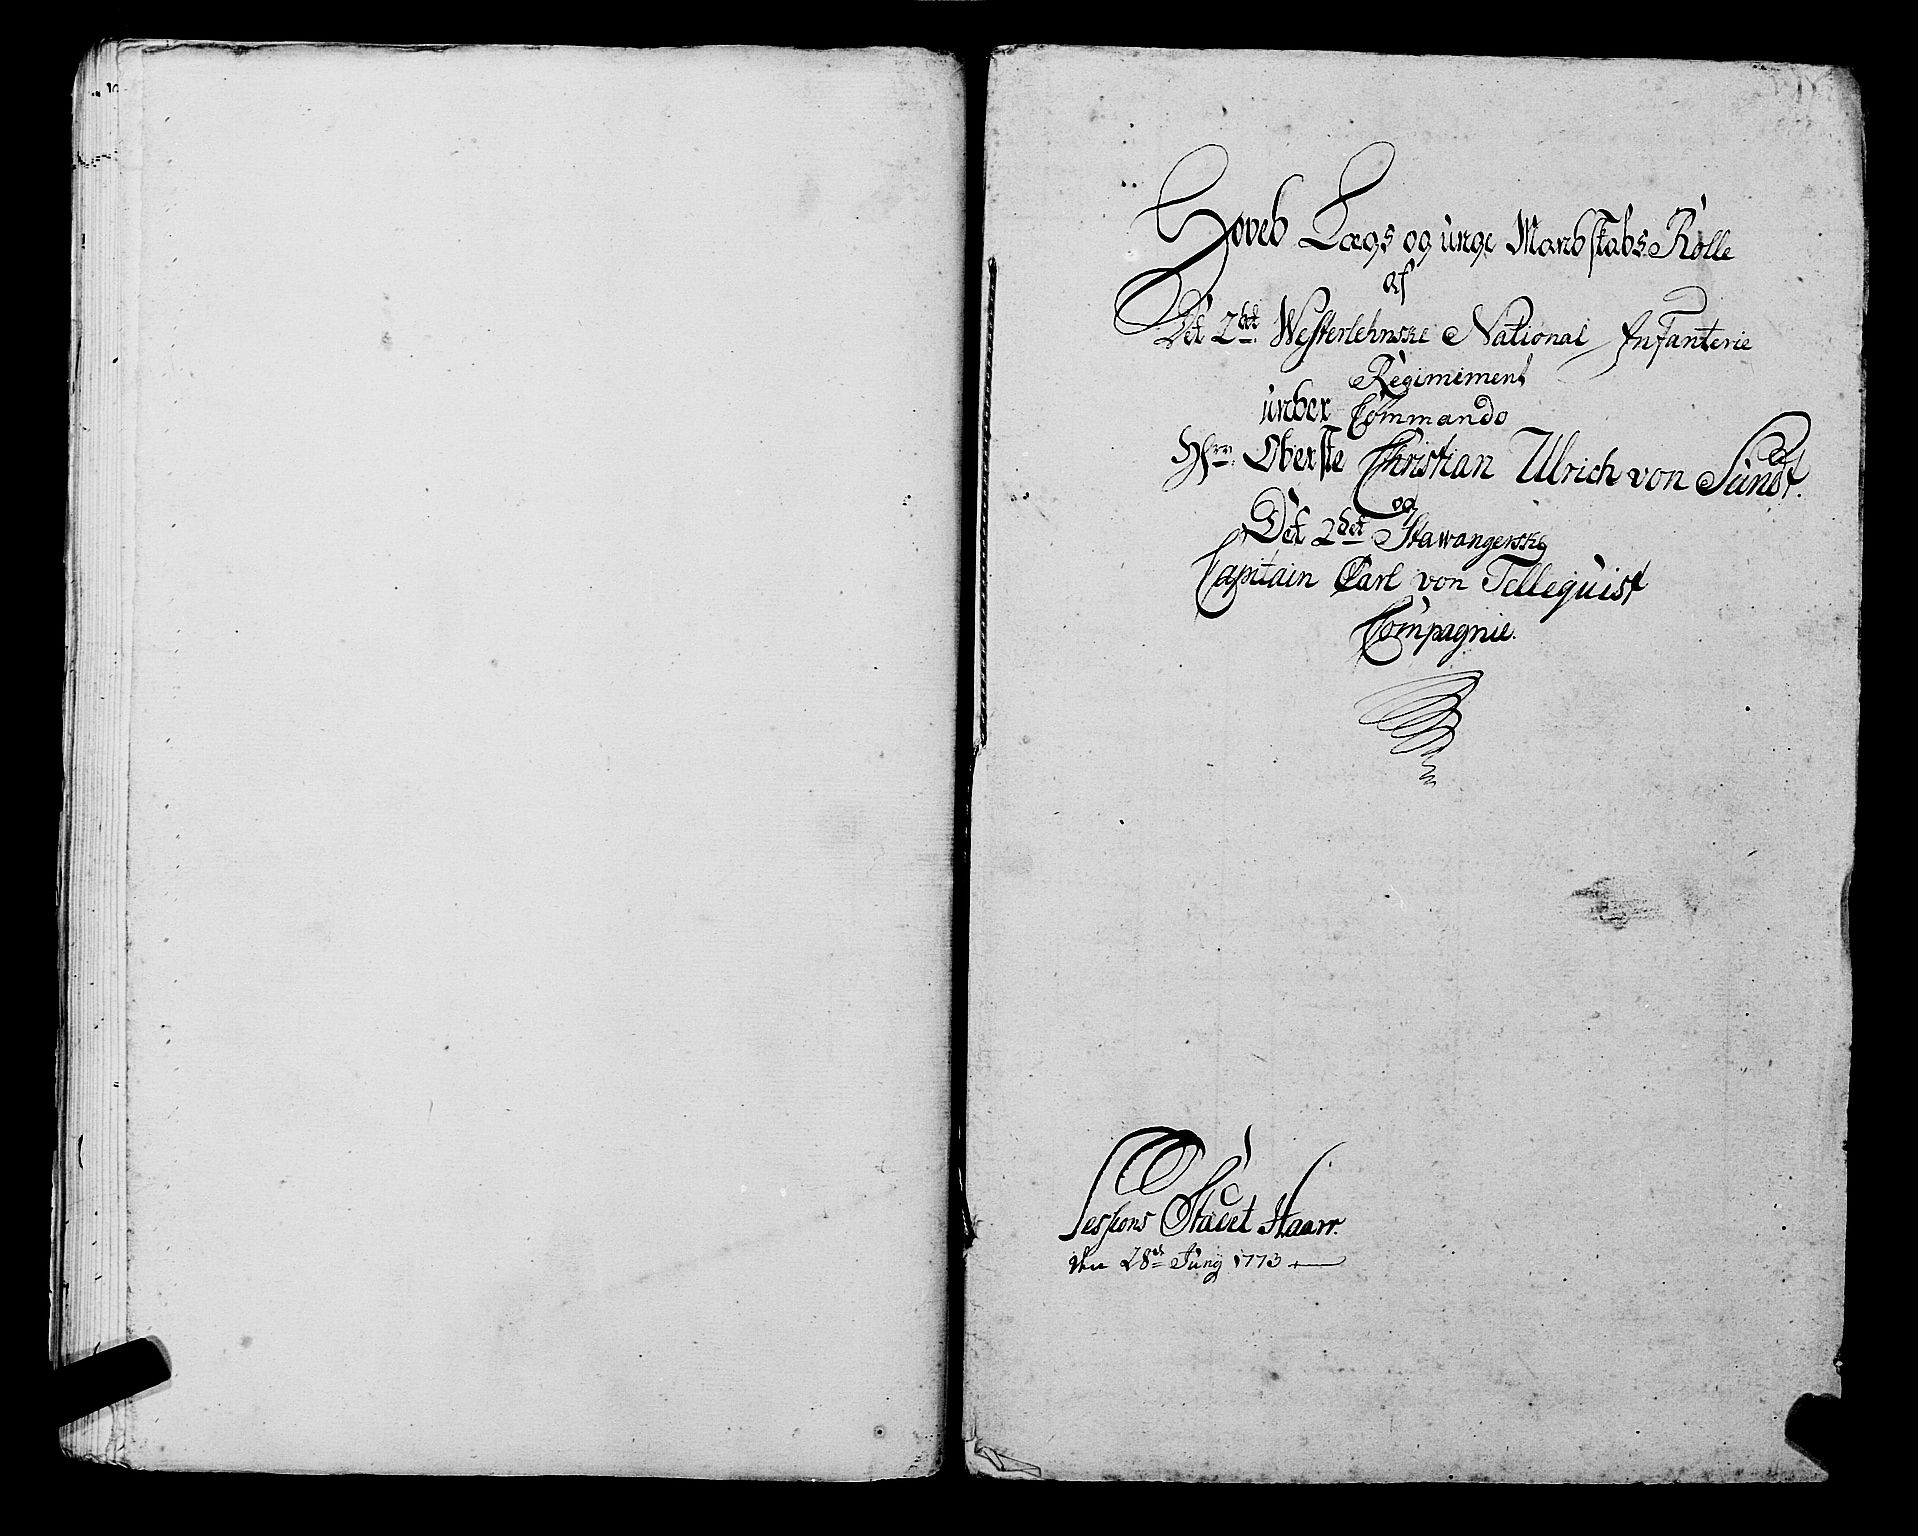 Hoved Lægs og unge Mandskabs Rolle
af
Det 2det Westerlehnske National Infanterie
Regimement
under Commando
Hrr. Oberste Christian Ulrich von Sundt.
og
Det 2det Stawangerske
Capitain Carl von Tellequist
Compagnie.
Sessions Stædet Haarr.
den 28de Juny 1773